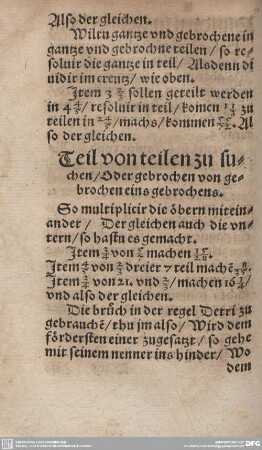 Also der gleichen.
Wiltu gantze vnd gebrochene in
gantze vnd gebrochne teilen / so re-
soluir die gantze in teil / Alsdenn di
uidir im creutz / wie oben.
Item 3 sollen geteilt werden
in 4 / resoluir in teil / komen zu
teilen in / machs / kommen Al
so der gleichen.
Teil von teilen zu su-
chen / Oder gebrochen von ge-
brochen eins gebrochens.
So multiplicir die öbern mitein-
ander / Der gleichen auch die vn-
tern / so hastu es gemacht.
Item von machen
Item von dreier 7 teil machē
Item von 21. vnd / machen 16
vnd also der gleichen.
Die brüch in der regel Detri zu
gebrauchē / thu jm also / Wird dem
fördersten einer zugesatzt / so gehe
mit seinem nenner ins hinder / Wo
dem